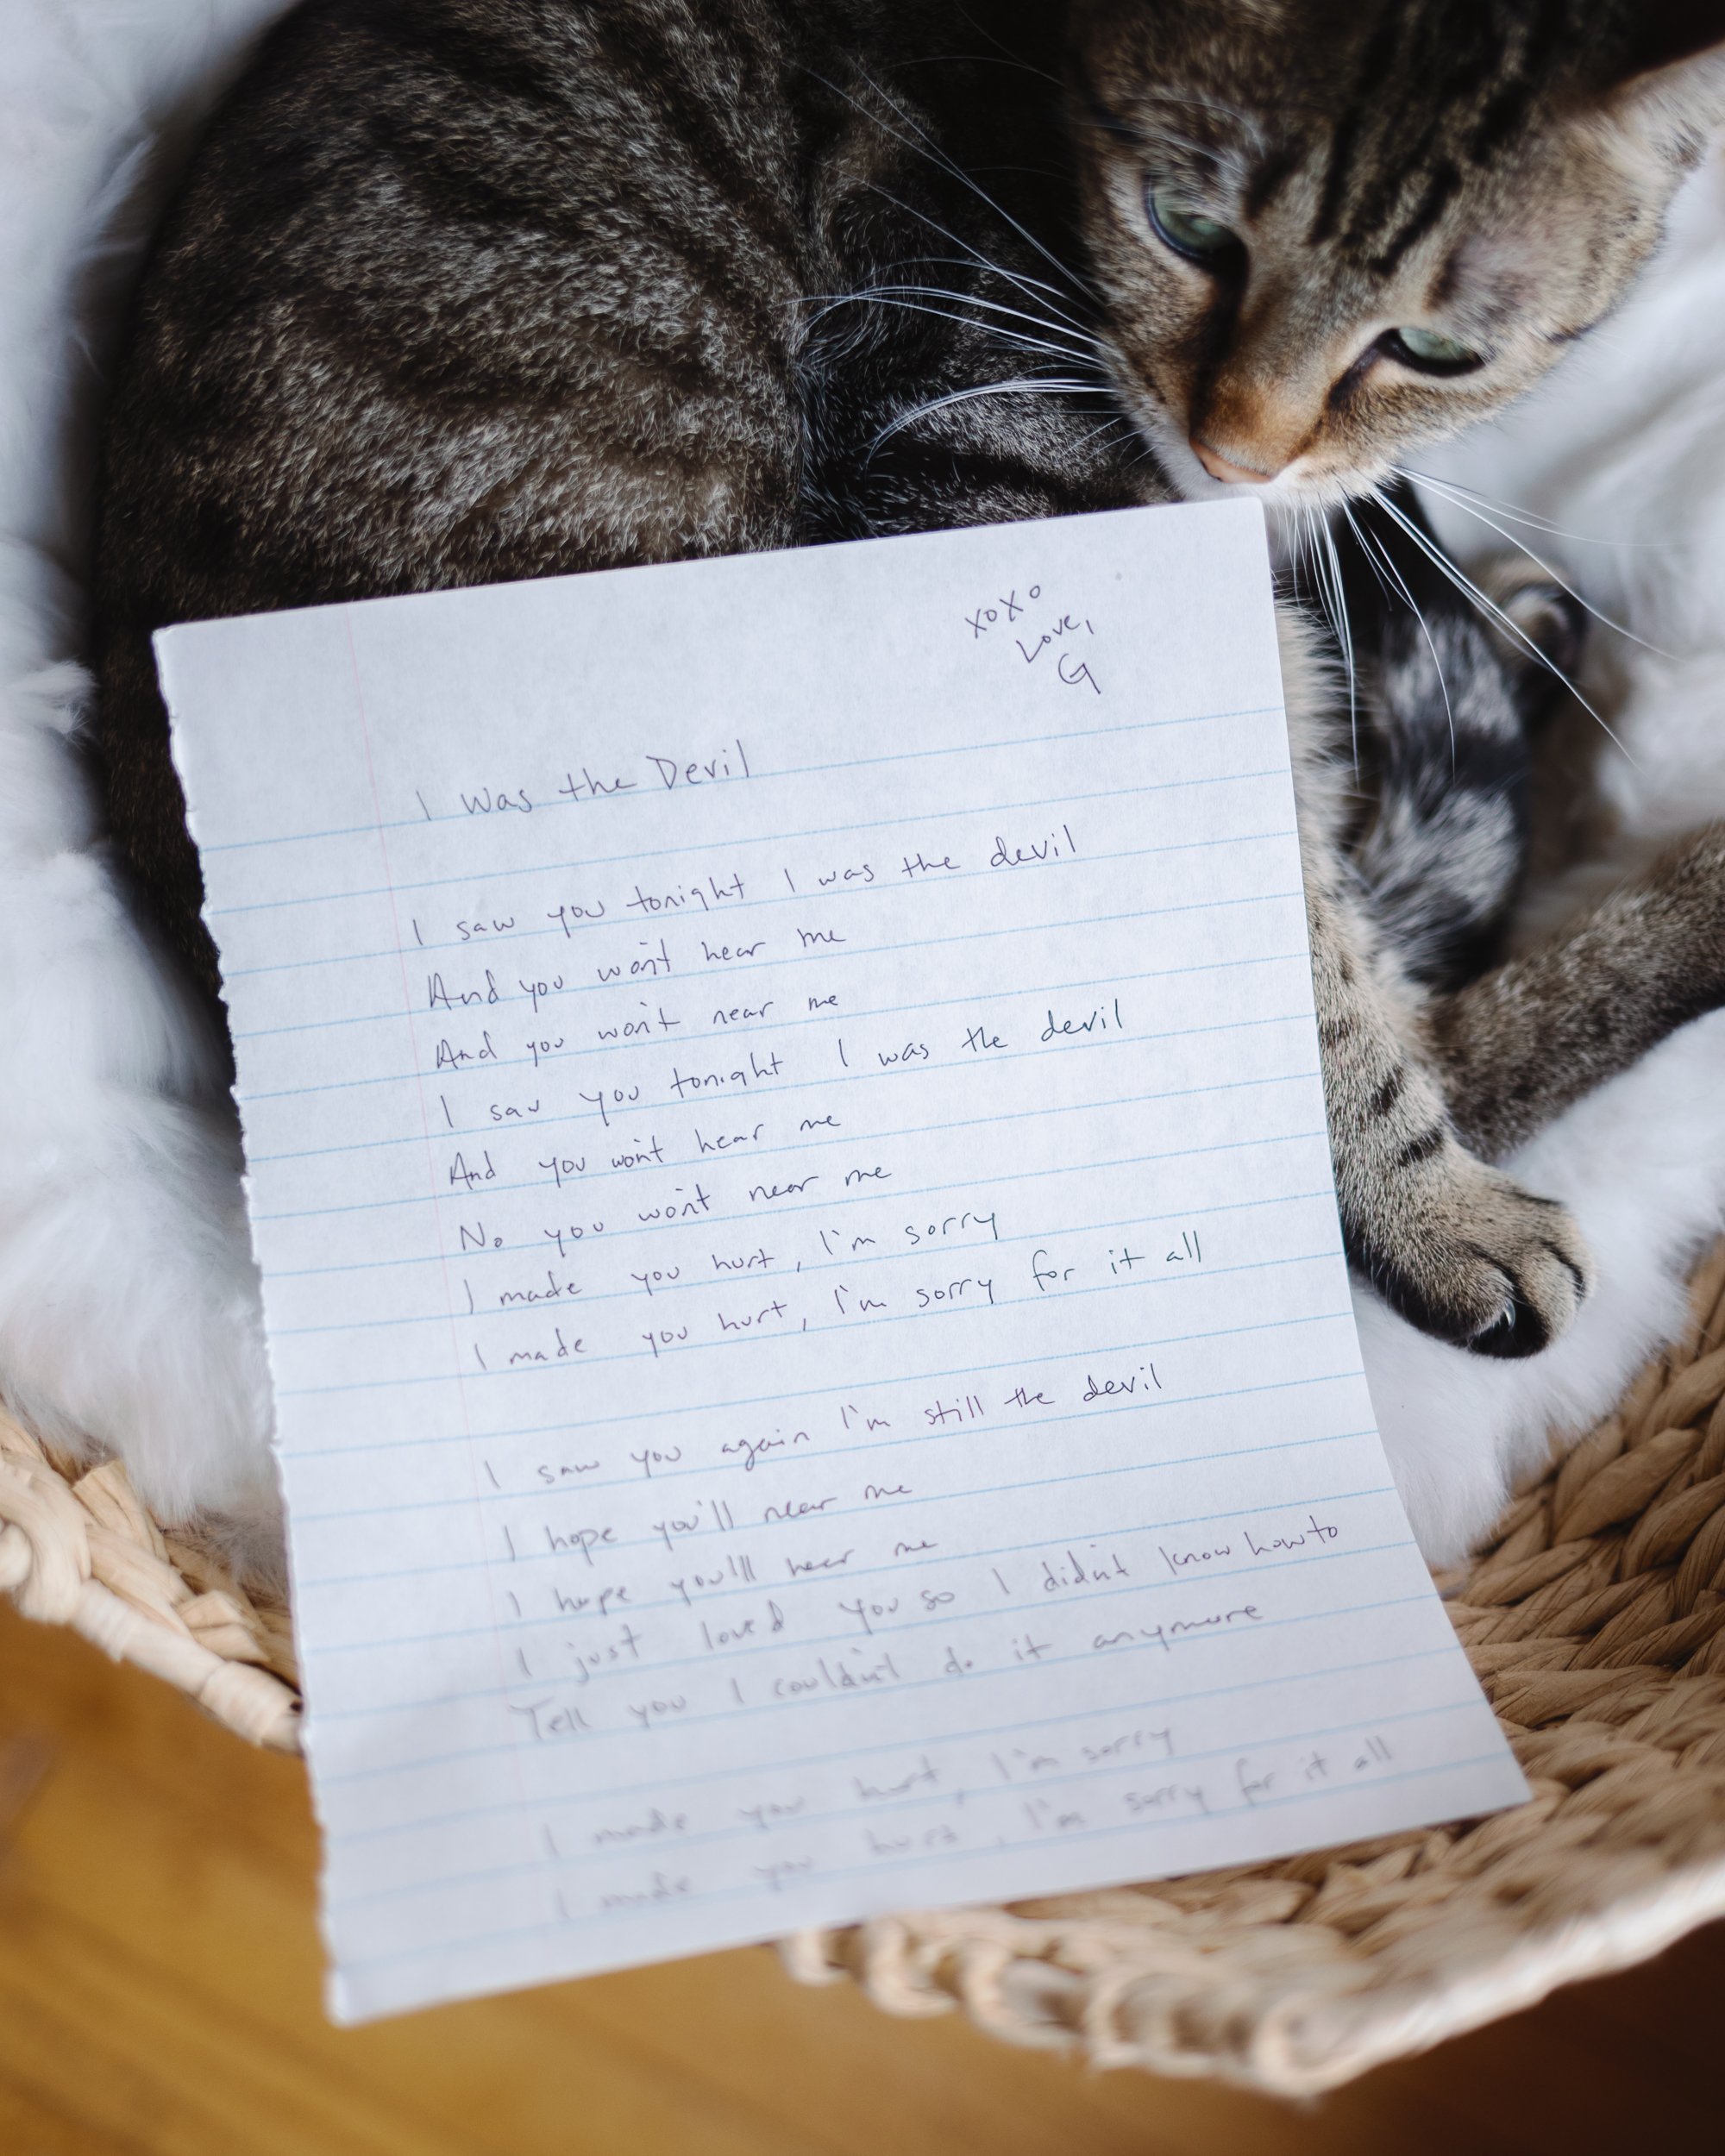 xoxo
Love,
G
I Was the Devil
I saw you tonight I was the devil
And you won't hear me
And you won't near me
I saw you tonight I was the devil
And you won't hear me
No you won't near me
I made you hurt, I'm sorry
I made you hurt, I'm sorry for it all
I saw you again I'm still the devil
I hope you'll near me
I hope you'll hear me
I just loved you so I didn't know how to
Tell you I couldn't do it anymore
I made you hurt, I'm sorry
I made you hurt, I'm sorry for it all